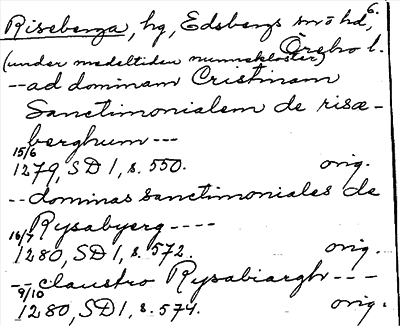 Riseberga, hg, Edsbergs sn o hd, 6.
Örebro l.
(under medeltiden nunnekloster)
-- ad dominam Cristinam
Sanctimonialem de risæ-
berghum ---
15/6
1279, SD 1, s. 550. orig.
-- dominas sanctimoniales de
Rysabyerg ----
16/7
1280, SD 1, s. 572 orig.
-- claustro Rysabiargh ---
9/10
1280, SD 1, s. 574. orig.